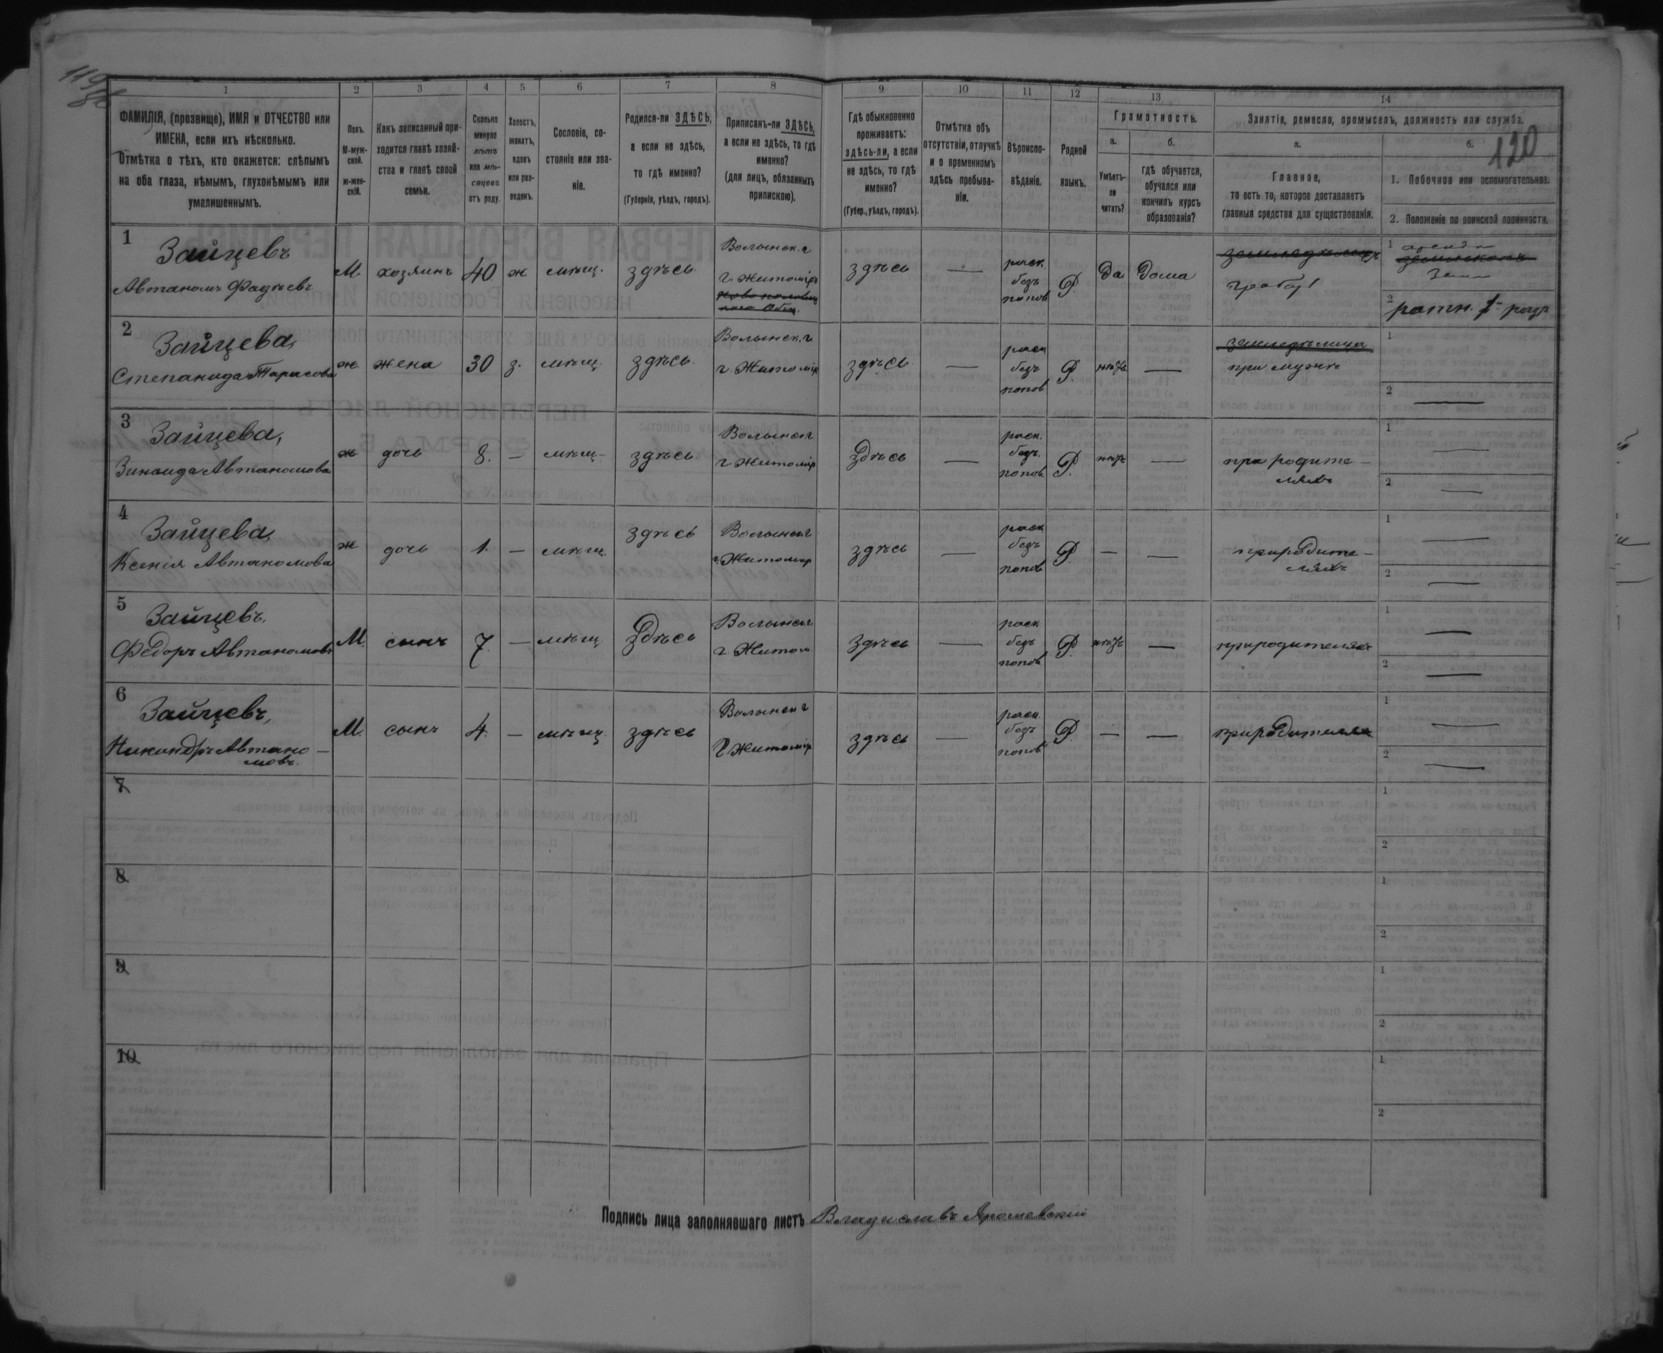 119
120
1 2 3 4 5 6 7 8 9 10 11 12 13 14
ФАМИЛІЯ, (прозвище), ИМЯ и ОТЧЕСТВО или
ИМЕНА, если ихъ нѣсколько.
Отмѣтка о тѣхъ, кто окажется: слѣпымъ
на оба глаза, нѣмымъ, глухонѣмымъ или
умалишеннымъ.
Полъ.
М-муж-
ской.
ж-жен-
скій.
Какъ записанный при-
ходится главѣ хозяй-
ства и главѣ своей
семьи.
Сколько
минуло
лѣтъ
или мѣ-
сяцевъ
отъ роду.
Холостъ,
женатъ,
вдовъ
или раз-
веденъ.
Сословіе, со-
стояніе или зва-
ніе.
Родился-ли ЗДѢСЬ,
а если не здѣсь,
то гдѣ именно?
(Губернія, уѣздъ, городъ).
Приписанъ-ли ЗДѢСЬ,
а если не здѣсь, то гдѣ
именно?
(для лицъ, обязанныхъ
припискою).
Гдѣ обыкновенно
проживаетъ:
здѣсь-ли, а если
не здѣсь, то гдѣ
именно?
(Губер., уѣздъ, городъ).
Отмѣтка объ
отсутствіи, отлучкѣ
и о временномъ
здѣсь пребыва-
ніи.
Вѣроиспо-
вѣданіе.
Родной
языкъ.
Грамотность.
а.
Умѣетъ-
ли
читать?
б.
Гдѣ обучается,
обучался или
кончилъ курсъ
образованія?
Занятія, ремесло, промыселъ, должность или служба.
а.
Главное,
то есть то, которое доставляетъ
главныя средства для существованія.
б.
1. Побочное или вспомогательное.
2. Положеніе по воинской повинности.
1 Зайцевъ
Автаномъ Фадѣевъ
М. хозяинъ 40 ж мѣщ. здѣсь
Волынск. г
г. Житоміръ
здѣсь —
раск
безъ
попов
Р. да дома
2 ратн. 1 разр
2 Зайцева,
Степанида Тарасова
ж. жена 30 з. мѣщ. здѣсь
Волынск. г
г. Житомір
здѣсь —
раск
безъ
попов
Р. нѣтъ —
при мужѣ
1
2 —
3 Зайцева,
Зинаида Автаномова
ж дочь 8. — мѣщ. здѣсь
Волынск г
г Житомір
здѣсь —
раск.
безъ
попов
Р. нѣтъ —
при родите —
ляхъ
1 —
2 —
4 Зайцева,
Ксенія Автаномова
ж дочь 1. — мѣщ здѣсь
Волынск г
г. Житомир
здѣсь —
раск
безъ
попов
Р — —
при родите —
ляхъ
1 —
2 —
5 Зайцевъ.
Федоръ Автаномовъ
М. сынъ 7. — мѣщ здѣсь
Волынск г
г Житом
здѣсь —
раск
безъ
попов
Р. нѣтъ —
при родителях
1 —
2 —
6 Зайцевъ,
Никандръ Автано —
мовъ.
М. сынъ 4 — мѣщ здѣсь
Волынск г
г. Житомір
здѣсь —
раск
безъ
попов
Р. — —
при родителях
1 —
2 —
7
1
2
8
1
2
9
1
2
10
1
2
Подпись лица заполнявшаго листъ Владиславъ Ярошевскій